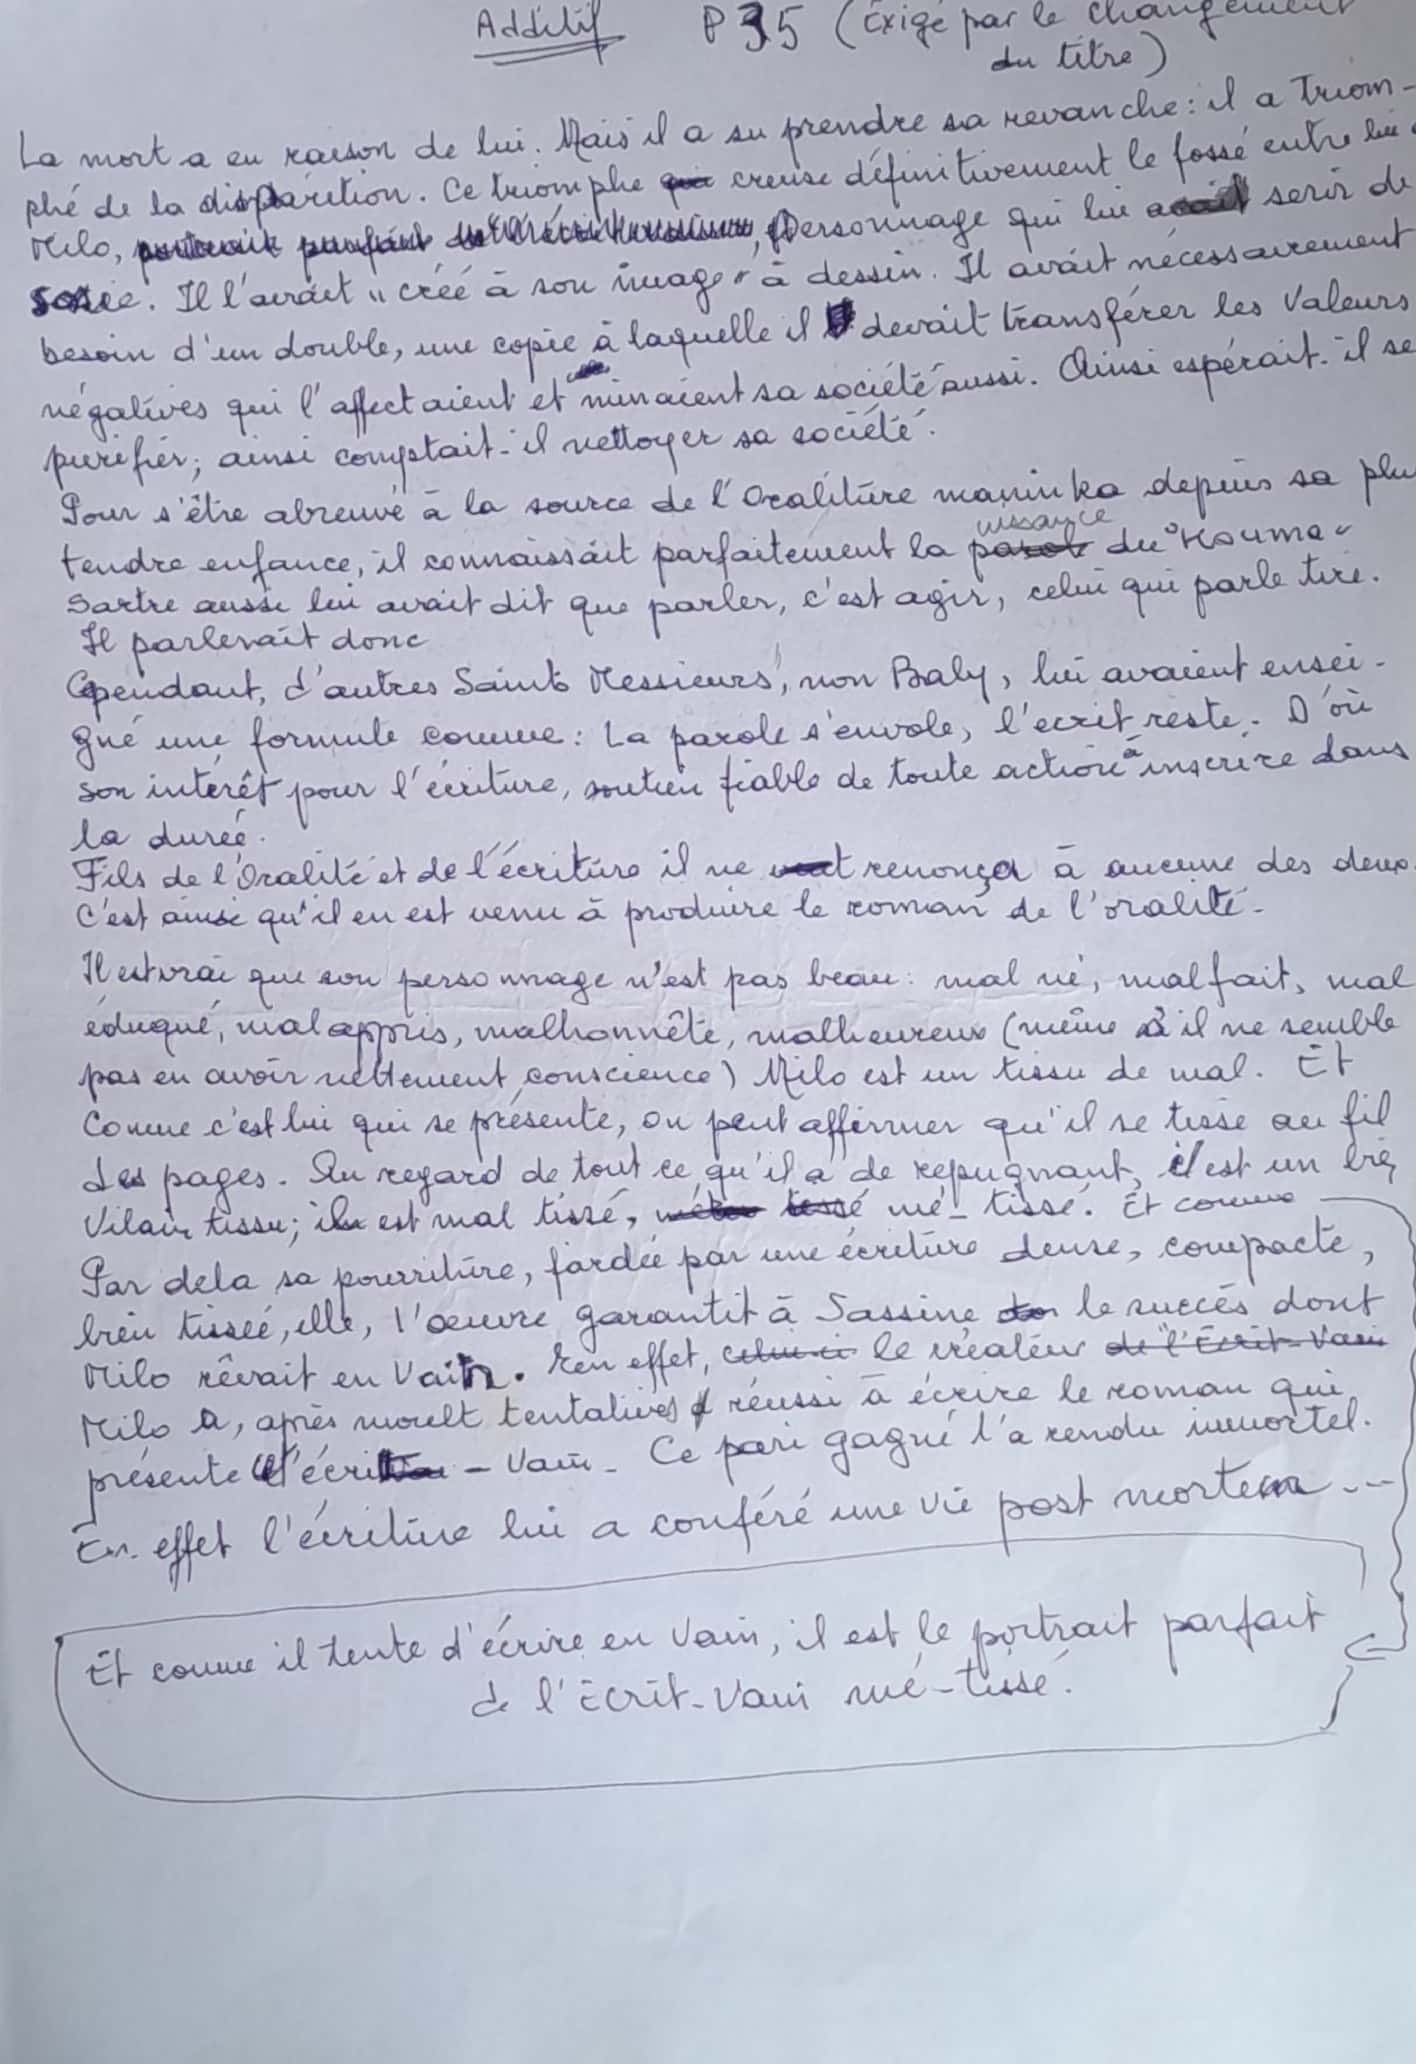 Additif P 35 (Exigé par le changement
du titre)
La mort a eu raison de lui. Mais il a su prendre sa revanche : il a triom-
phé de la disparition. Ce triomphe creuse définitivement le fossé entre lui
Milo, personnage qui lui serir de
sosie. Il l'avait "créé à son image" à dessin. Il avait nécessairement
besoin d'un double, une copie à laquelle il devait transférer les valeurs
négatives qui l'affectaient et minaient sa société aussi. Ainsi espérait-il se
purifier ; ainsi comptait-il nettoyer sa société.
Pour s'être abreuvé à la source de l'Oraliture maninka depuis sa plus
tendre enfance, il connaissait parfaitement la puissance du "Kouma"
Sartre aussi lui avait dit que parler, c'est agir, celui qui parle tire.
Il parlerait donc
Cependant, d'autres Saints Messieurs, non Baly, lui avaient ensei-
gné une formule comme : La parole s'envole, l'ecrit reste. D'où
son intérêt pour l'écriture, soutien fiable de toute action à inscrire dans
la durée.
Fils de l'Oralité et de l'écriture il ne renonça à aucune des deux.
C'est ainsi qu'il en est venu à produire le roman de l'oralité.
Il est vrai que son personnage n'est pas beau : mal né, mal fait, mal
éduqué, mal appris, malhonnête, malheureux (même s'il ne semble
pas en avoir nettement conscience) Milo est un tissu de mal. Et
Comme c'est lui qui se présente, on peut affirmer qu'il se tisse au fil
des pages. Au regard de tout ce qu'il a de répugnant, il est un très
Vilain tissu ; il est mal tissé, mé-tissé. Et comme
Par dela sa pourriture, fardée par une écriture dense, compacte,
bien tissée, elle, l'oeuvre garantit à Sassine le succès dont
Milo rêvait en Vain. En effet, le créateur
Milo a, après moult tentatives réussi à écrire le roman qui
présente l'écrit-Vain. Ce pari gagné l'a rendu immortel.
En effet l'écriture lui a conféré une vie post mortem ...
Et comme il tente d'écrire en Vain, il est le portrait parfait
de l'Ecrit-Vain mé-tissé.